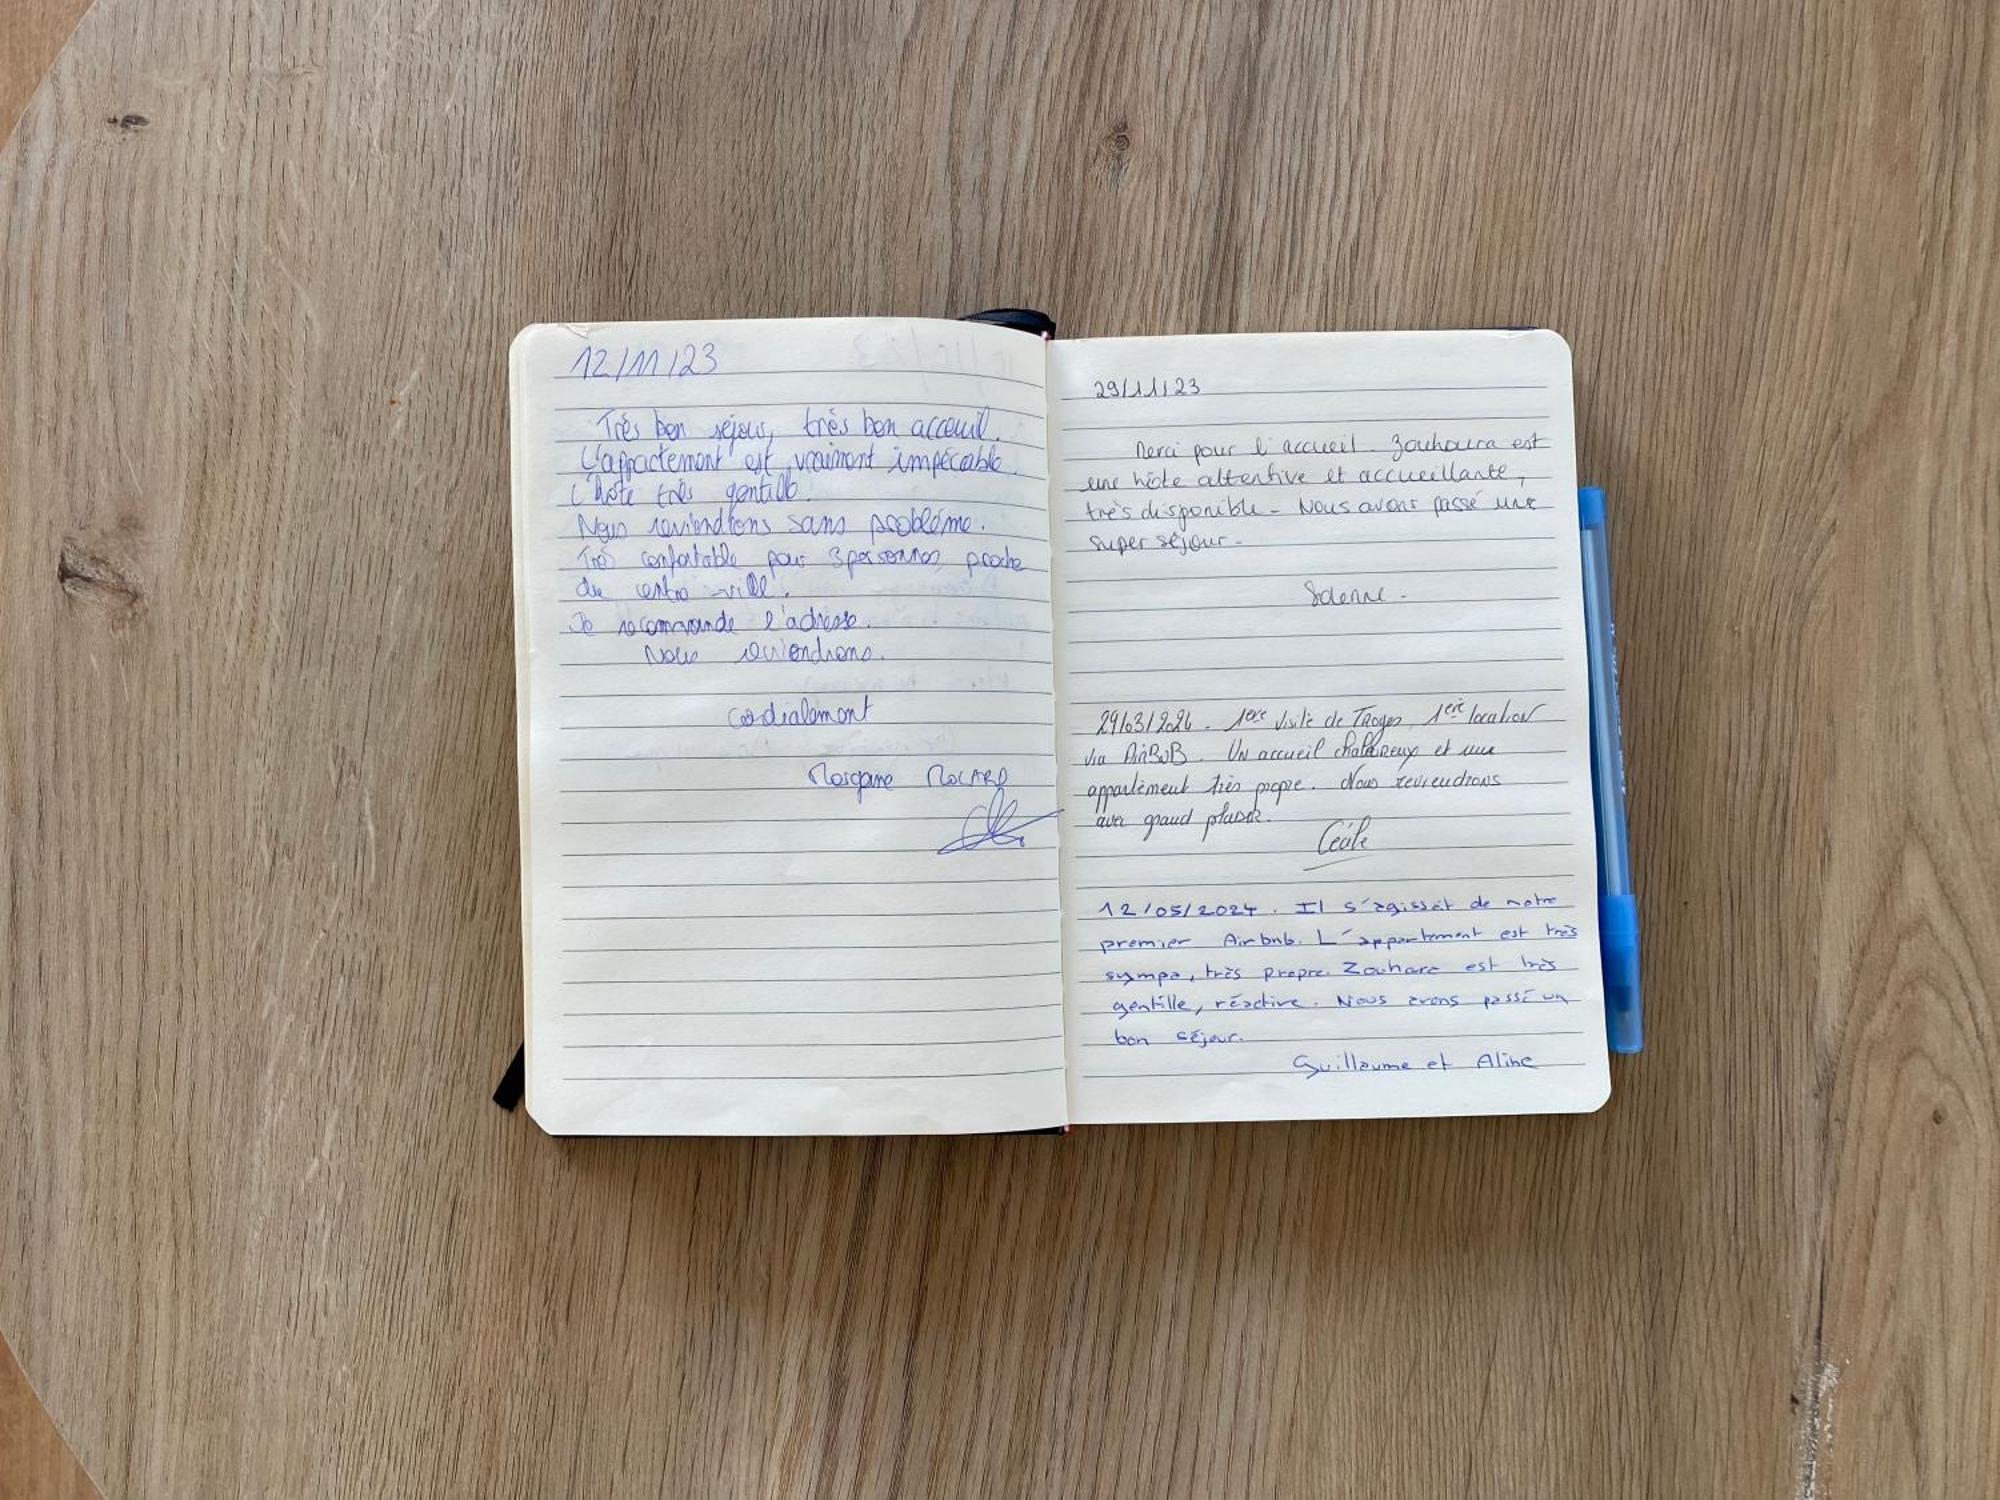 12/11/23
Très bon séjour, très bon acceuil.
L'appartement est vraiment impécable.
L'hôte très gentille.
Nous reviendrons sans problème.
Très confortable pour 3 personnes, proche
du centre-ville.
Je recommande l'adresse.
Nous reviendrons.
Cordialement
Morgane
29/11/23
Merci pour l'accueil. Zouhoura est
une hôte attentive et accueillante,
très disponible - Nous avons passé une
super séjour -
Solenne -
29/03/2024 - 1ère visite de Troyes, 1ère location
via AirBnB. Un accueil chaleureux et une
appartement très propre. Nous reviendrons
avec grand plaisir.
Cécile
12/05/2024. Il s'agissait de notre
premier Airbnb. L'appartement est très
sympa, très propre. Zouhara est très
gentille, réactive. Nous avons passé un
bon séjour.
Guillaume et Aline